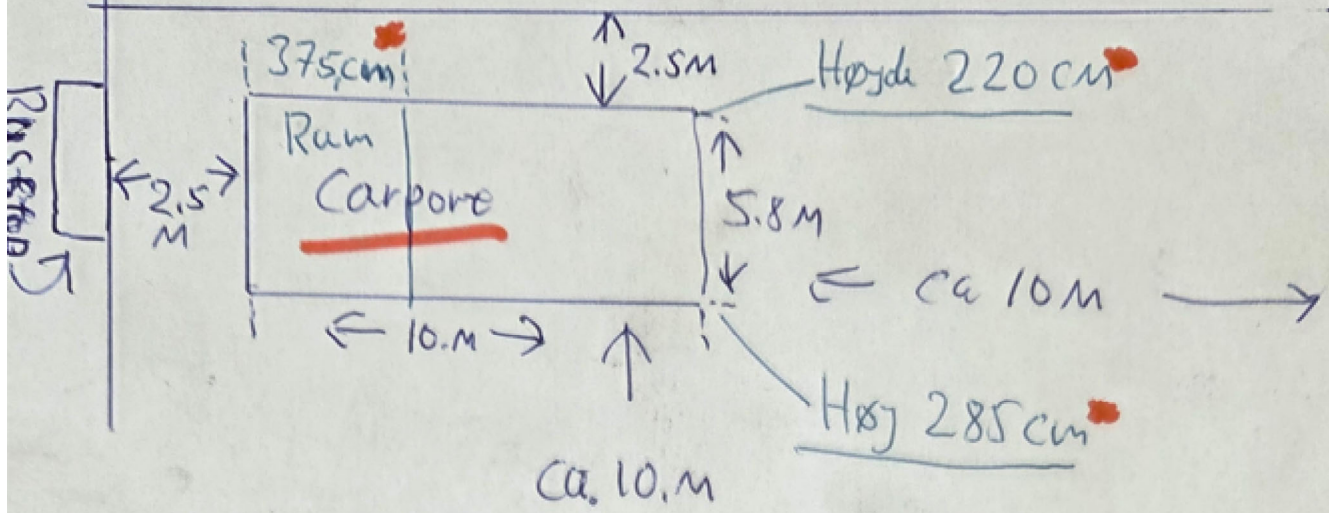 375,cm
2.5M
Højde 220 cm
Rum
Carpore
2.5
M
5.8 M
ca 10 M
10.M
Høj 285 cm
Ca. 10.M